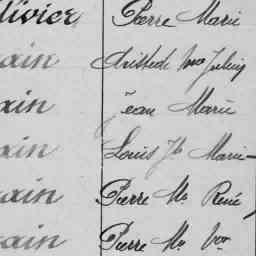 livier Pierre Marie
ain Aristide Mie Julien
ain Jean Marie
ain Louis Je Marie
ain Pierre Me René
ain Pierre Me